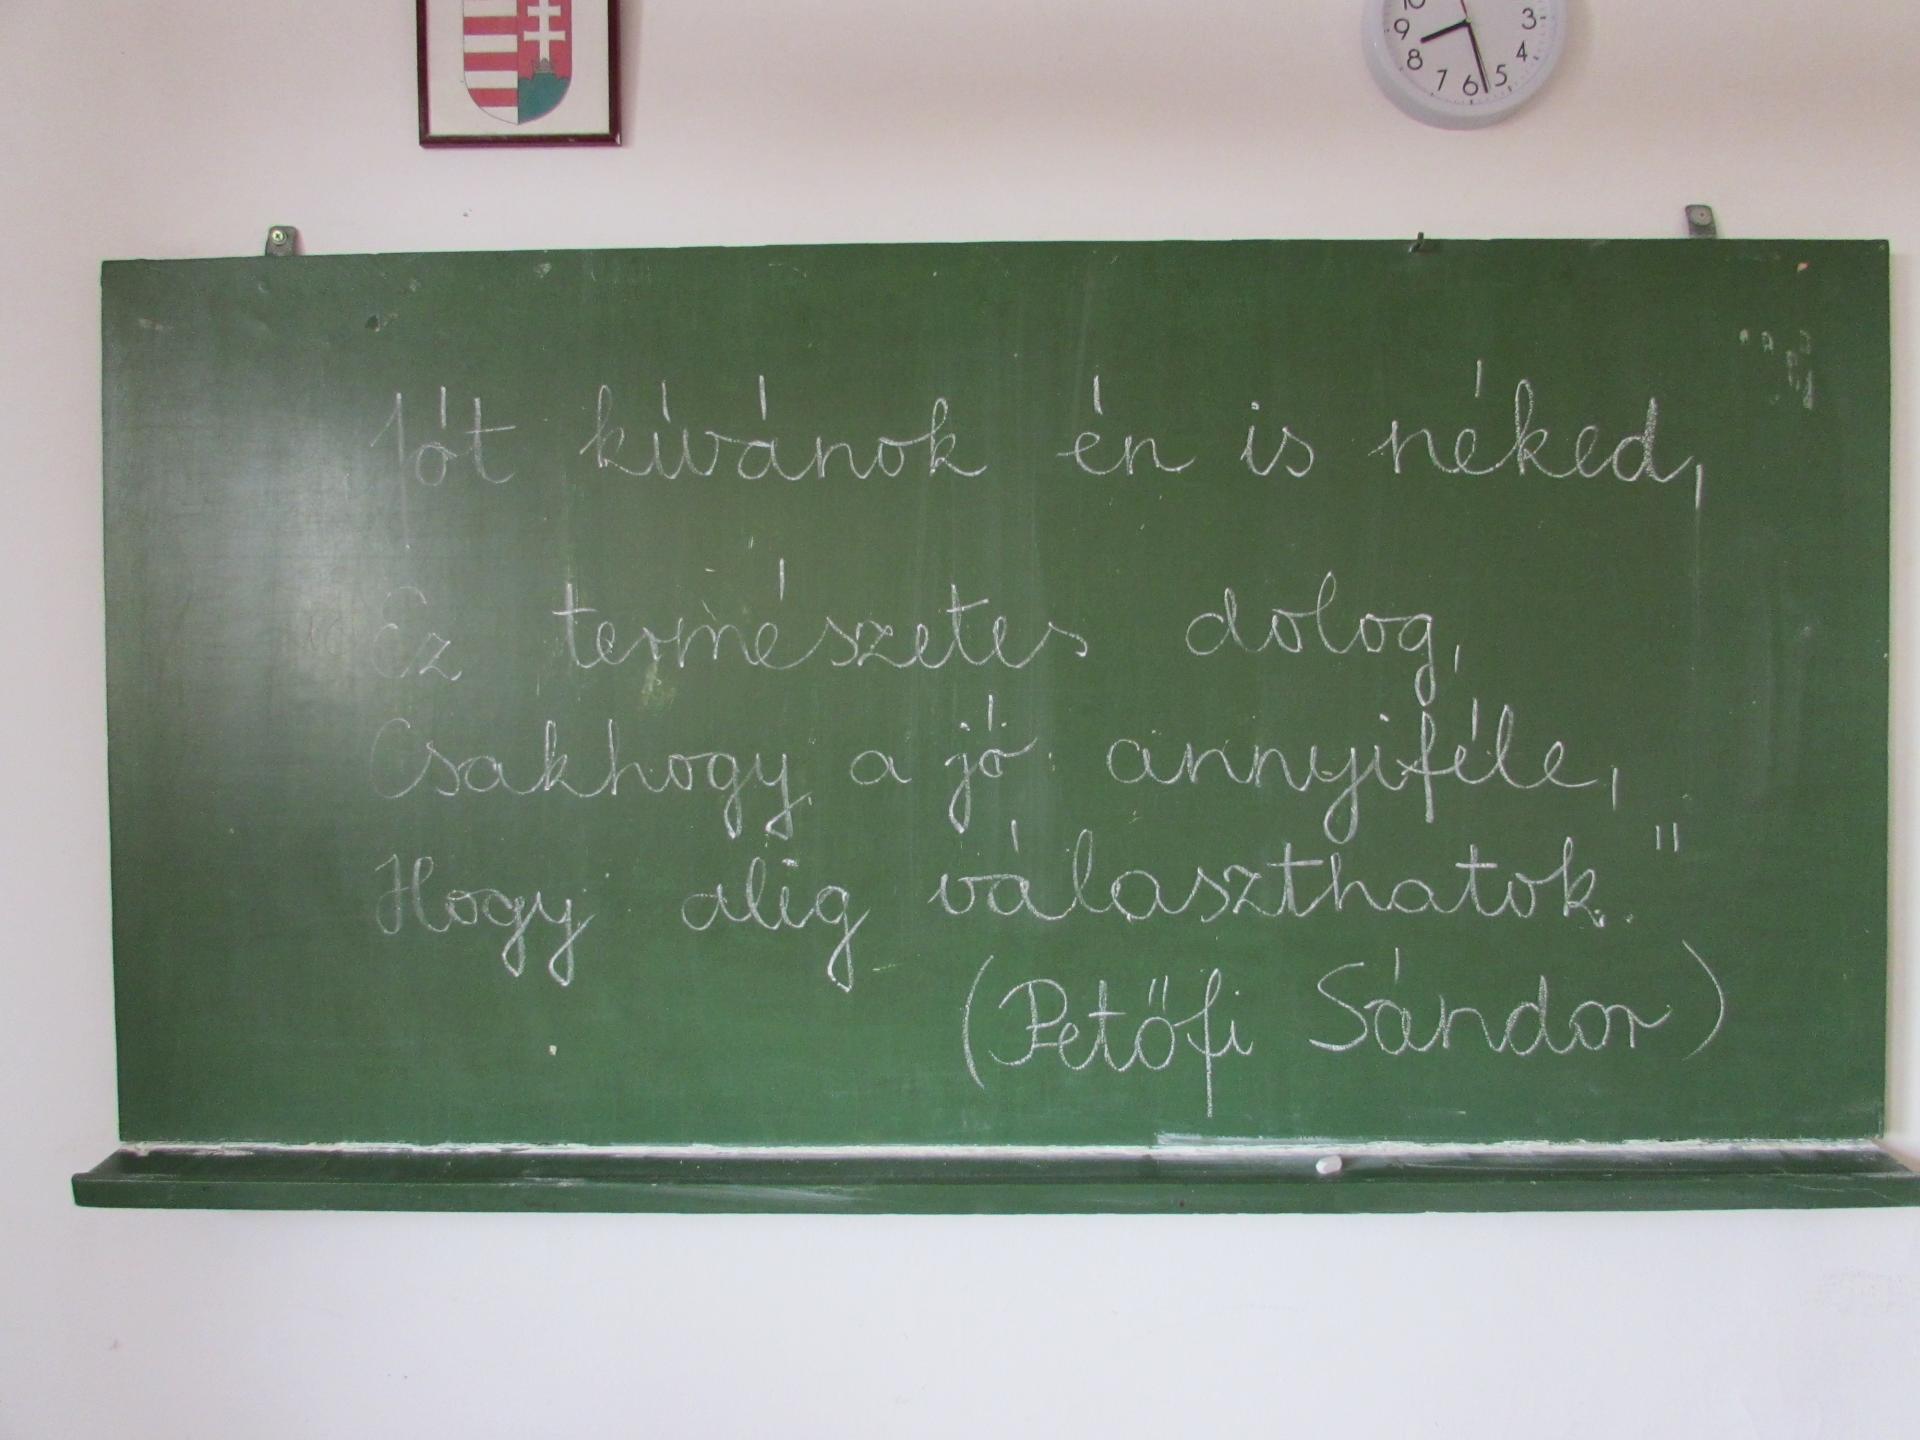 10
9
8
7
6
5
4
3
Jót kívánok én is néked,
Ez természetes dolog,
Csakhogy a jó annyiféle,
Hogy alig választhatok."
(Petőfi Sándor)